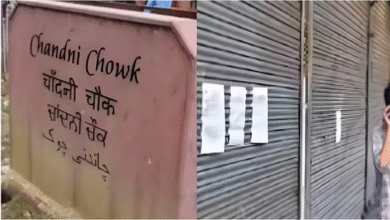 Chandni Chowk
चाँदनी चौक
ਚਾਂਦਨੀ ਚੌਂਕ
چاندنی چوک